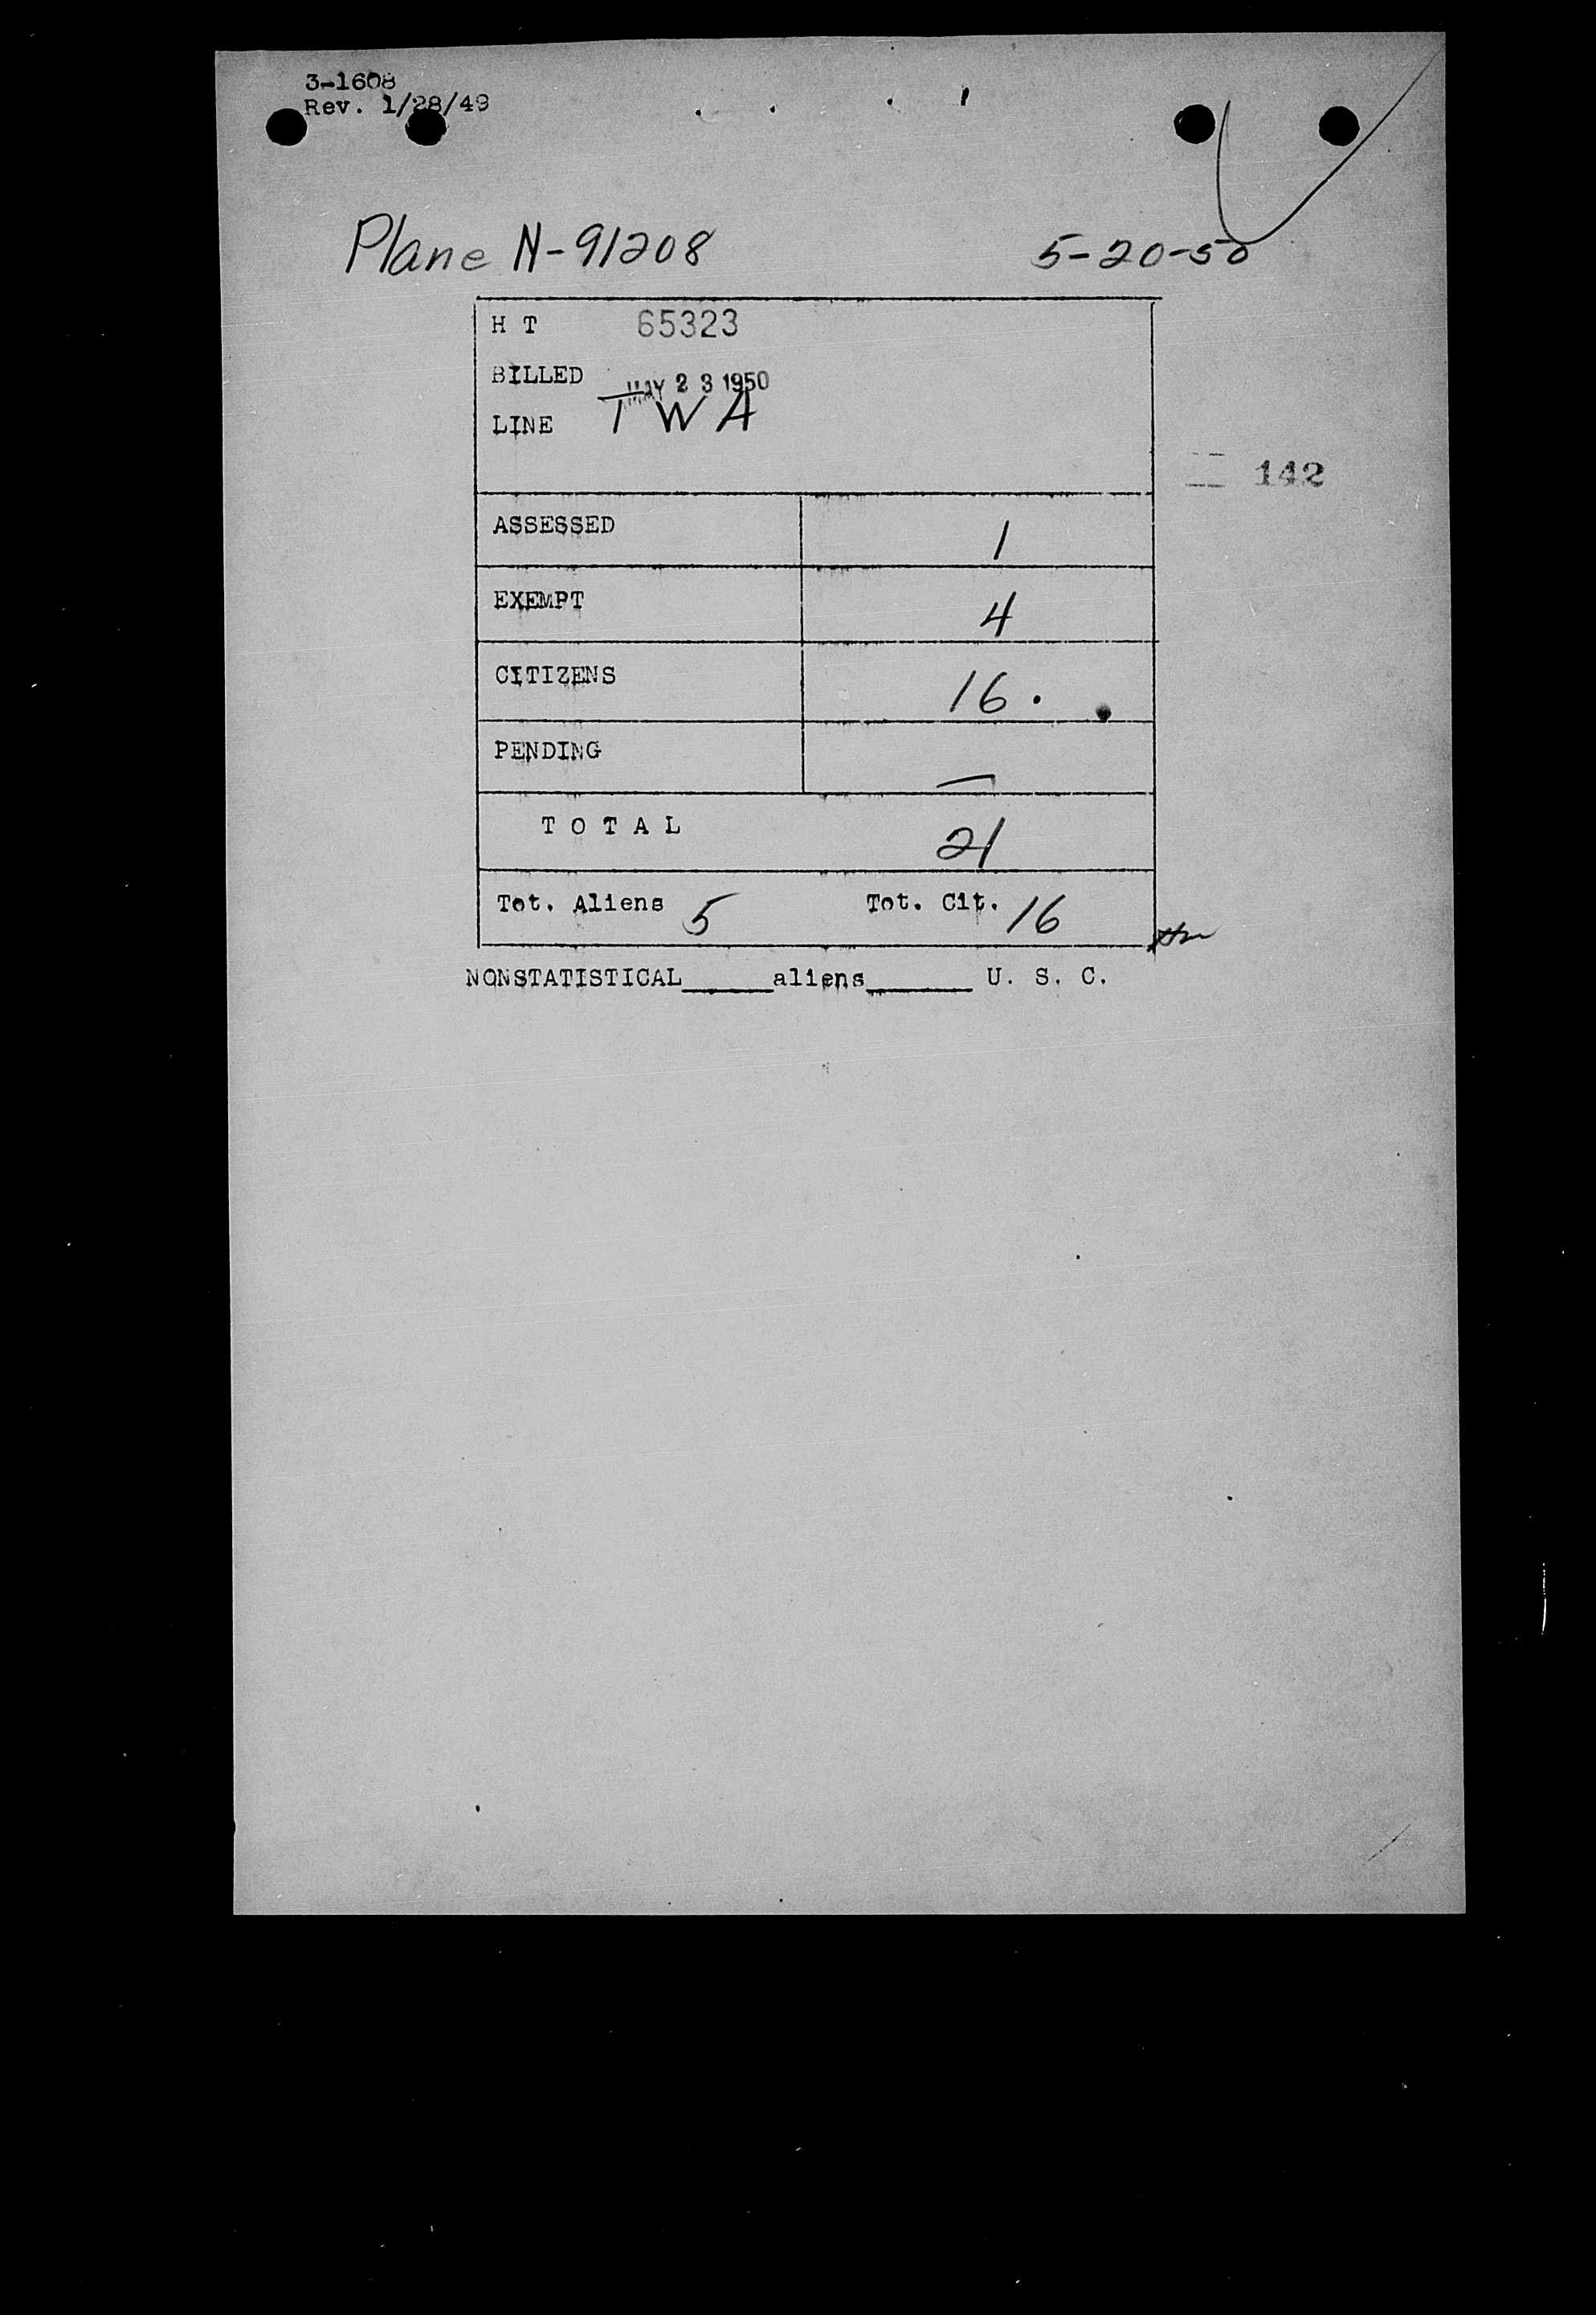 3-1608
Rev. 1/28/49
Plane N-91208 5-20-50
H T 65323
BILLED MAY 23 1950
LINE TWA
142
ASSESSED 1
EXEMPT 4
CITIZENS 16.
PENDING —
TOTAL 21
Tot. Aliens 5 Tot. Cit. 16
NONSTATISTICAL______aliens_______ U. S. C.